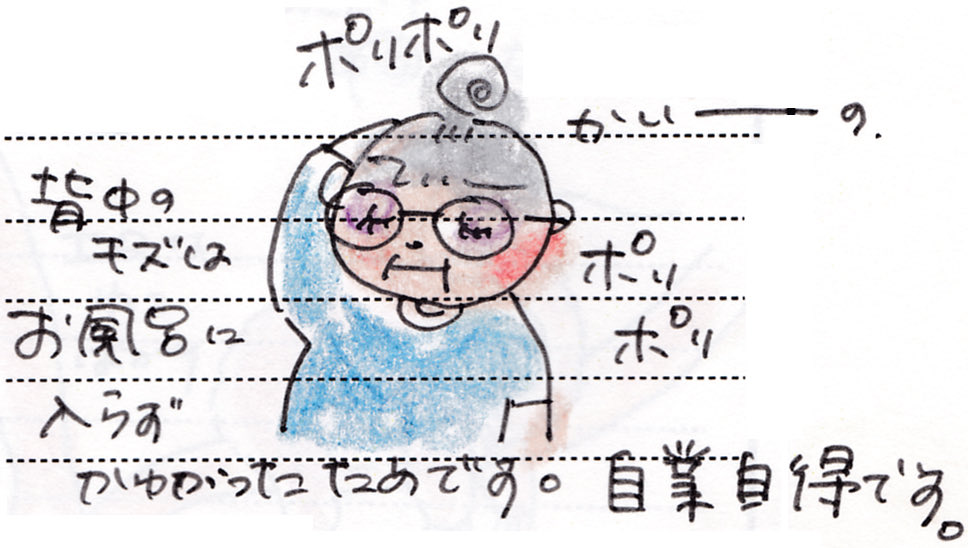 ポリポリ
かいーーの.
背中の
キズは
お風呂に
入らず
かゆかったためです。自業自得です。
ポリ
ポリ